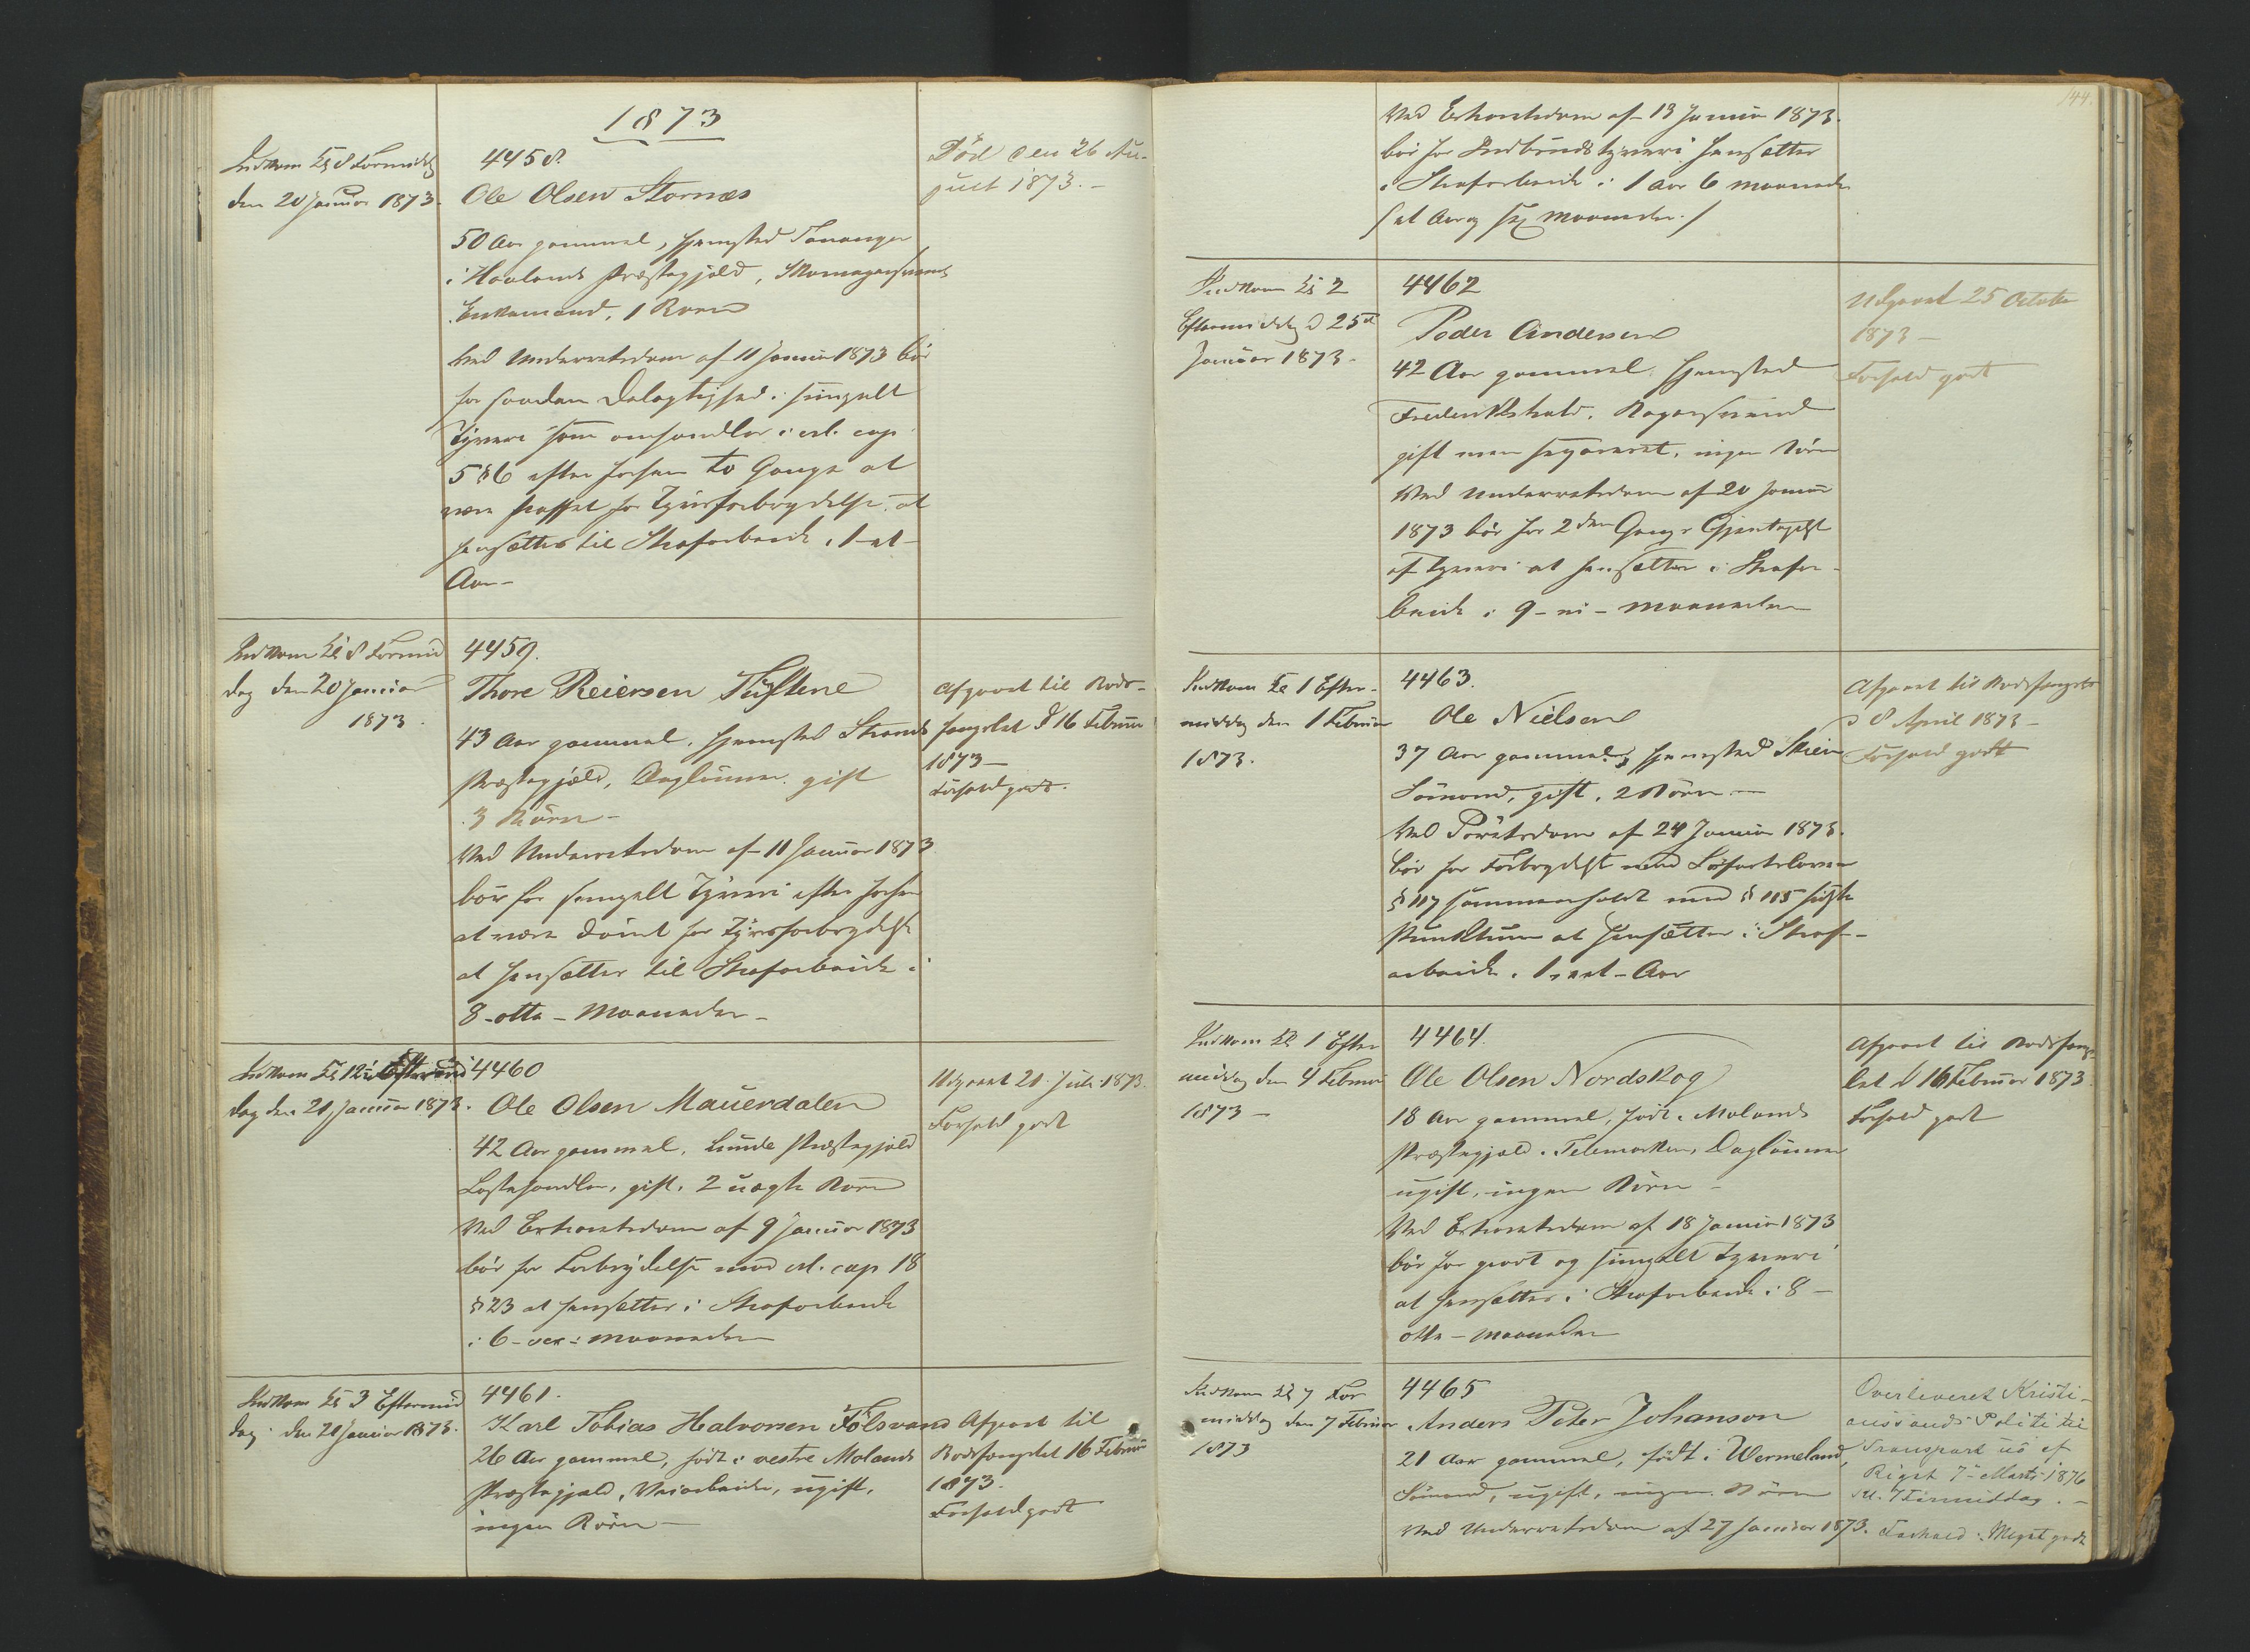 1873
Indkom Kl 8 Formidd
den 20 Januar 1873.
4458.
Ole Olsen Stornæs
50 Aar gammel, Hjemsted Tananger
i Haalands Præstegjeld, Skomagersvend
Enkemand, 1 Barn
Ved Underretsdom af 11 Januar 1873 bör
for saadan Delagtighed i simpelt
Tyveri som omhandles i crl. cap
5 § 6 efter forhen to Gange at
være straffet for Tyvsforbrydelse at
hensættes til Strafarbeide i 1 - et -
Aar -
Död den 26 Au-
gust 1873. -
Indkom Kl 8 Formid
dag den 20 Januar
1873.
4459.
Thore Reiersen Tuftene
43 Aar gammel, Hjemsted Strands
Præstegjæld, Daglönner, gift
3 Börn -
Ved Underretsdom af 11 Januar 1873
bör for simpelt Tyveri efter forhen
at være dömt for Tyvsforbrydelse
at hensættes til Strafarbeide i
8 - otte - Maaneder -
Afgaaet til Bods-
fængslet d 16 Februar
1873 -
Forhold godt.
Indkom Kl 12 Eftermid
dag den 21 Januar 1873.
4460
Ole Olsen Mauerdalen
42 Aar gammel, Lunde Præstegjeld
Løsehandler, gift, 2 uægte Børn
Ved Extraretsdom af 9 Januar 1873
bör for Forbrydelse mod crl. cap 18
§ 23 at hensættes i Strafarbeide
i 6 - sex - Maaneder
Udgaaet 21 Juli 1873.
Forhold godt
Indkom Kl 3 Eftermid
dag den 21 Januar 1873.
4461.
Karl Tobias Halvorsen Fölsvand
26 Aar gammel, födt i vestre Molands
Præstegjæld, Veiarbeider, ugift,
ingen Börn -
Afgaaet til
Bodsfængslet 16 Februar
1873.
Forhold godt
144.
Ved Extraretsdom af 13 Januar 1873.
bör for Indbrudstyveri hensættes
i Strafarbeide i 1 Aar 6 Maaneder
/ et Aar og sex Maaneder. /
Indkom Kl 2
Eftermiddag d 25d
Januar 1873.
4462
Peder Andersen
42 Aar gammel, Hjemsted
Frederikshald, Bagersvend
gift men separeret, ingen Börn
Ved Underretsdom af 20 Januar
1873 bör for 2den Gangs Gjentagelse
af Tyveri at hensættes i Strafar-
beide i 9 - ni - Maaneder
Udgaaet 25 October
1873 -
Forhold godt
Indkom Kl 1 Efter-
middag den 1 Februar
1873.
4463.
Ole Nielsen
37 Aar gammel, Hjemsted Skien
Sömand, gift, 2 Börn -
Ved Söretsdom af 24 Januar 1873.
bör for Forbrydelse mod Söfartsloven
§ 117 sammenholdt med § 115 sidste
Punktum at hensættes i Straf-
arbeide i 1 - et - Aar
Afgaaet til Bodsfængslet
d 8 April 1873 -
Forhold godt
Indkom Kl 1 Efter
middag den 4 Februar
1873 -
4464.
Ole Olsen Nordskog
18 Aar gammel, födt i Molands
Præstegjæld i Telemarken, Daglönner
ugift, ingen Börn -
Ved Extraretsdom af 18 Januar 1873
bör for grovt og simpelt Tyveri
at hensættes i Strafarbeide i 8 -
otte - Maaneder
Afgaaet til Bodsfæng-
slet d 16 Februar 1873.
Forhold godt
Indkom Kl 7 For
middag den 7 Februar
1873
4465
Anders Peter Johanson
21 Aar gammel, födt i Wermeland,
Sömand, ugift, ingen Börn
Ved Underretsdom af 27 Januar 1873.
Overleveret Kristi-
anssands Politi til
Transport ud af
Riget 7de Marts 1876
Kl. 7 Formiddag. -
Forhold: Meget godt